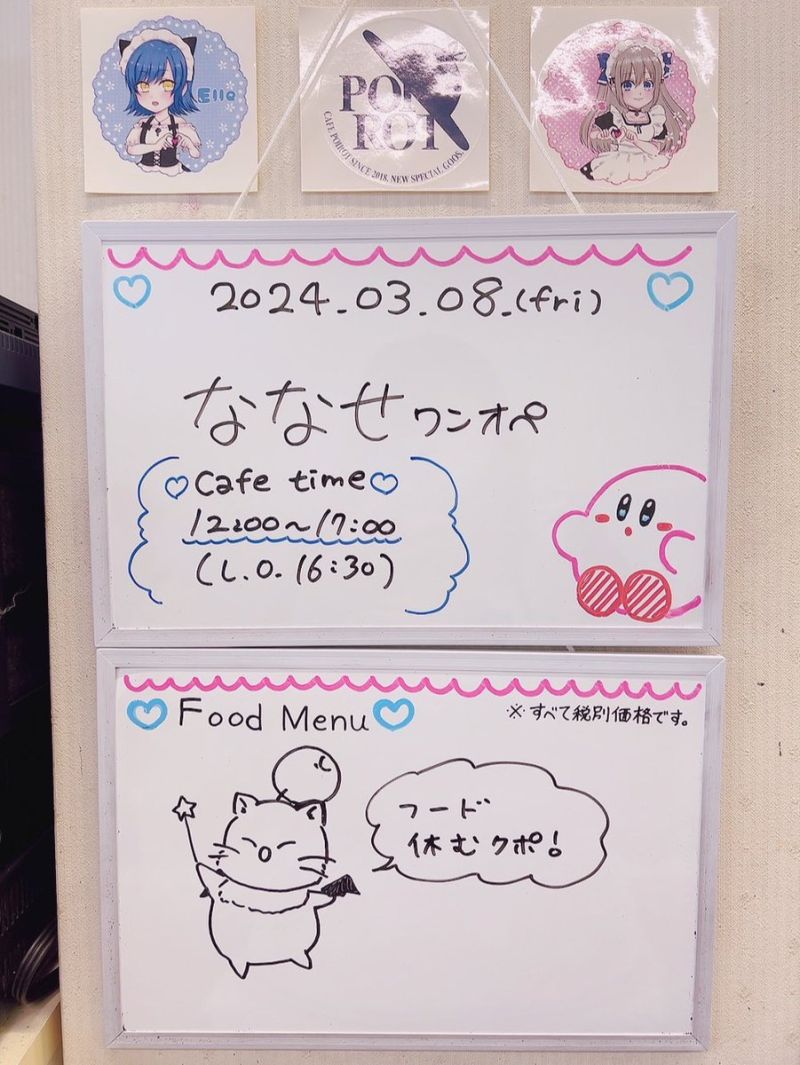 Elle
POI
ROT
CAFE POIROT SINCE 2018. NEW SPECIAL GOODS.
2024.03.08.(fri)
ななせワンオペ
Cafe time
12:00～17:00
(L.O. 16:30)
Food Menu
※すべて税別価格です。
フード
休むクポ!